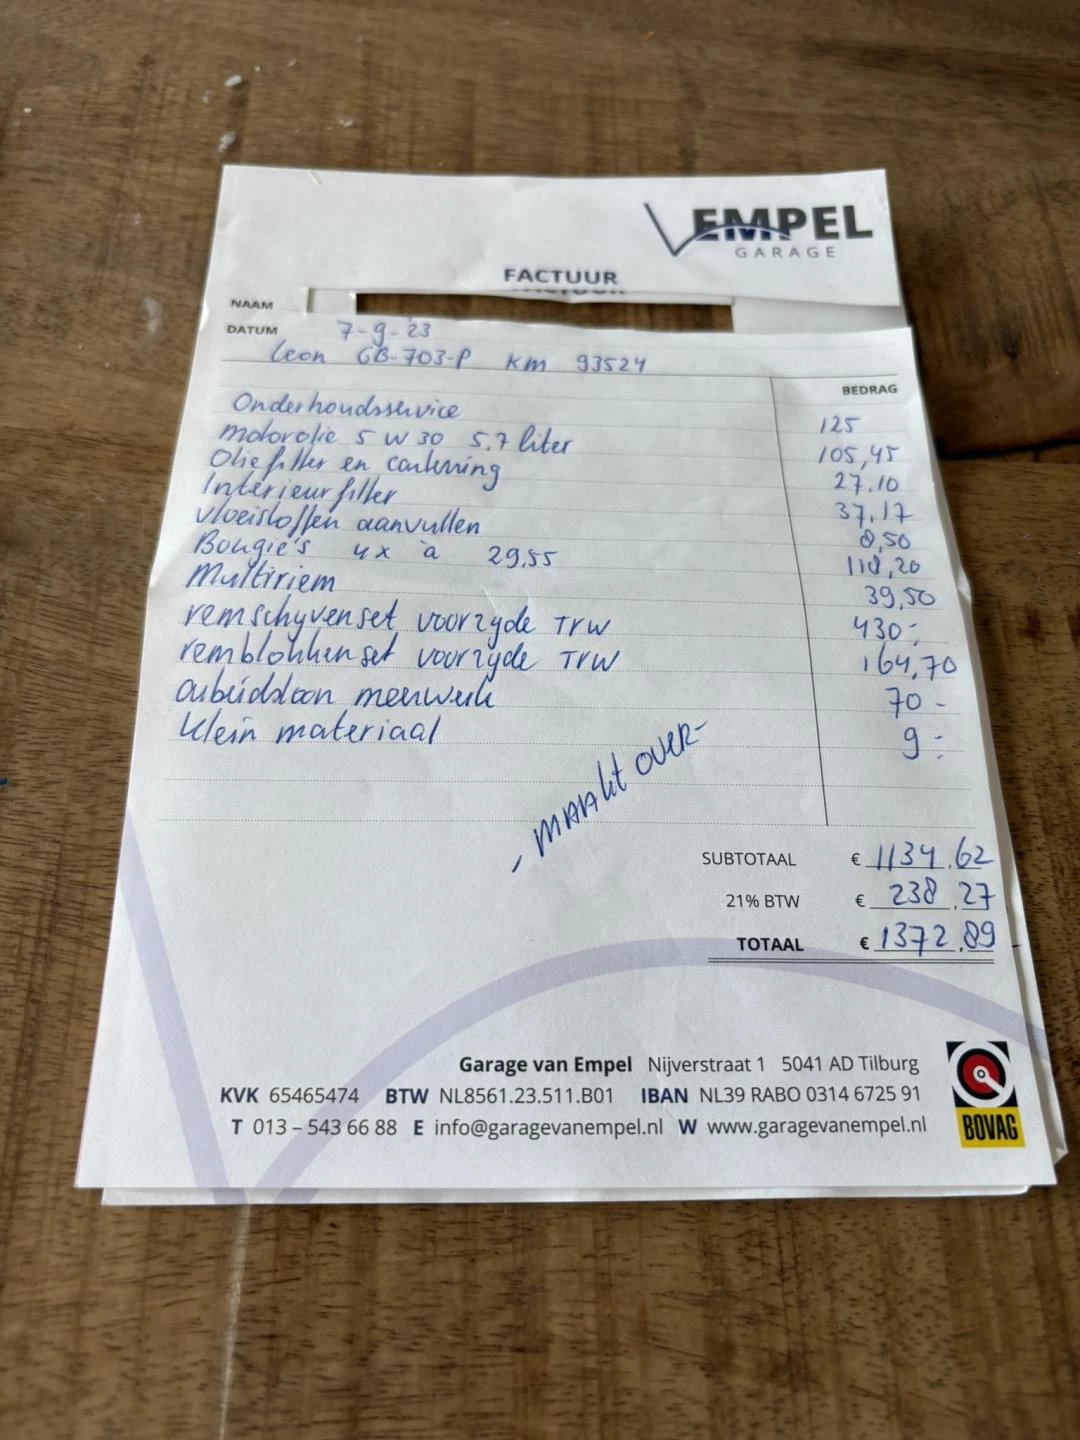 EMPEL
GARAGE
FACTUUR
NAAM
DATUM 7-9-'23
Leon GB-703-P KM 93524
BEDRAG
Onderhoudsservice 125
motorolie 5W30 5,7 liter 105,45
Oliefilter en carterring 27.10
Interieurfilter 37,17
vloeistoffen aanvullen 8,50
Bougie's 4x à 29,55 118,20
Multiriem 39,50
remschyvenset voorzyde TRW 430:
remblokkenset voorzyde TRW 164,70
arbeidsloon meerwerk 70 -
Klein materiaal 9 :
, MAAkt OVER-
SUBTOTAAL € 1134,62
21% BTW € 238,27
TOTAAL € 1372,89
Garage van Empel Nijverstraat 1 5041 AD Tilburg
KVK 65465474 BTW NL8561.23.511.B01 IBAN NL39 RABO 0314 6725 91
T 013 – 543 66 88 E info@garagevanempel.nl W www.garagevanempel.nl
BOVAG